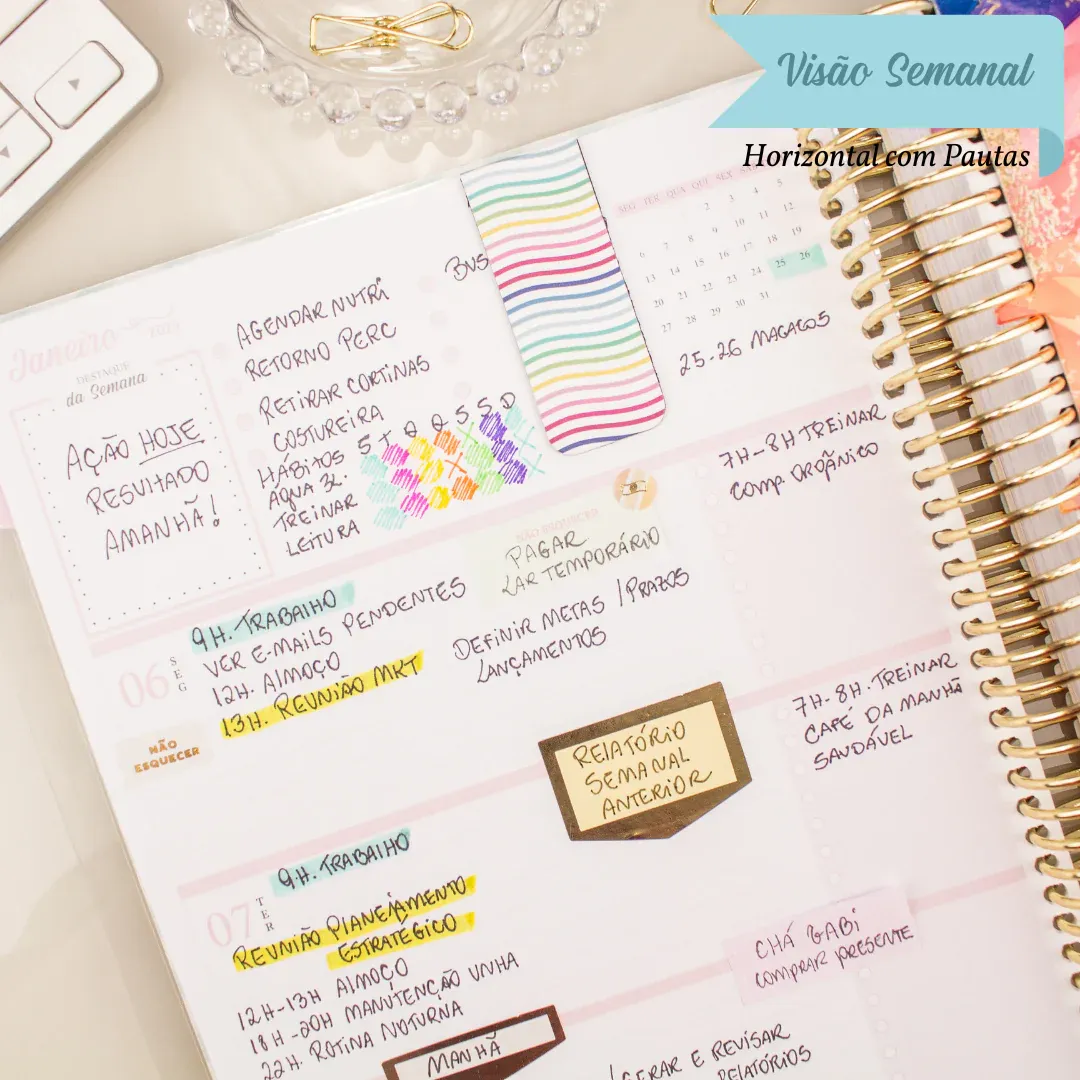 Visão Semanal
Horizontal com Pautas
SEG TER QUA QUI SEX
2 3 4 5
6 7 8 9 10 11 12
13 14 15 16 17 18 19
20 21 22 23 24 25 26
27 28 29 30 31
25-26 MACACOS
Janeiro
DESTAQUE
da Semana
AÇÃO HOJE
RESULTADO
AMANHÃ!
AGENDAR NUTRI
RETORNO PERC
RETIRAR CORTINAS
COSTUREIRA
HÁBITOS S T Q Q S S D
ÁGUA 3L.
TREINAR
LEITURA
BUS
NÃO ESQUECER
PAGAR
LAR TEMPORÁRIO
7H-8H TREINAR
COMP. ORGÂNICO
06
SEG
9H. TRABALHO
VER E-MAILS PENDENTES
12H. ALMOÇO
13H. REUNIÃO MKT
DEFINIR METAS / PRAZOS
LANÇAMENTOS
NÃO
ESQUECER
RELATÓRIO
SEMANAL
ANTERIOR
7H-8H. TREINAR
CAFÉ DA MANHÃ
SAUDÁVEL
07
TER
9H. TRABALHO
REUNIÃO PLANEJAMENTO
ESTRATÉGICO
12H-13H ALMOÇO
18H-20H MANUTENÇÃO UNHA
22H. ROTINA NOTURNA
MANHÃ
CHÁ GABI
COMPRAR PRESENTE
GERAR E REVISAR
RELATÓRIOS